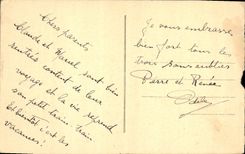 Chers parents
Claude et Marcel sont bien
rentrés content de leur
voyage et la vie reprend
son petit train train
A bientôt les
vacances!
Je vous embrasse
bien fort tous les
trois sans oublier
Pierre et Renée
Odette